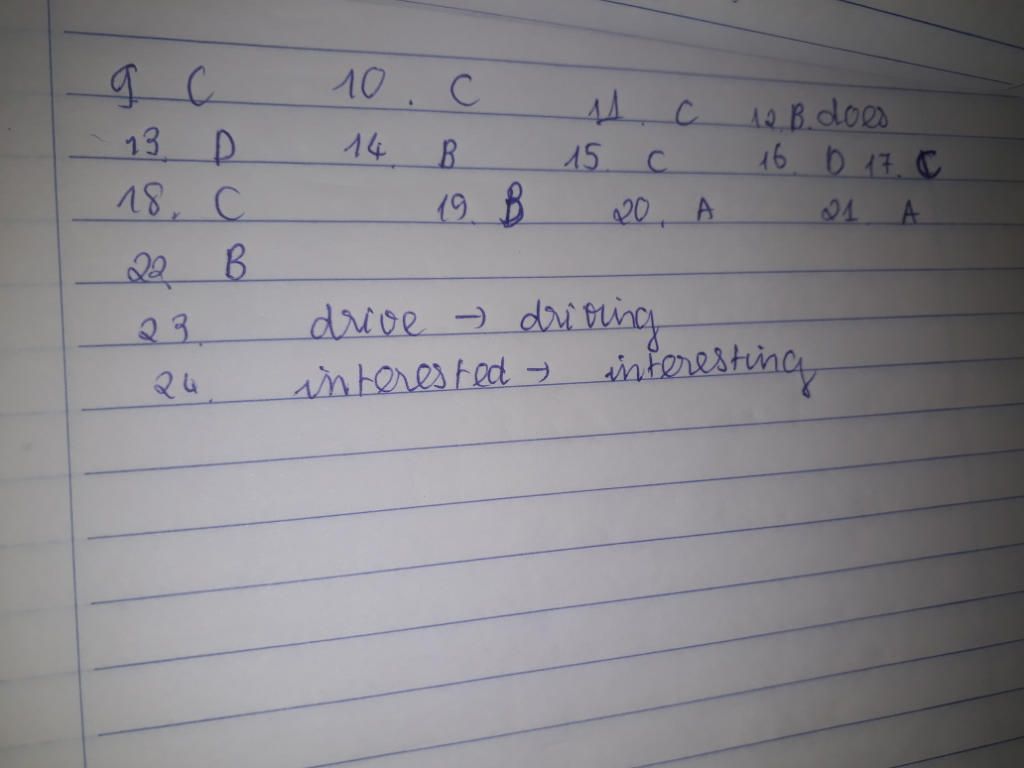 9 C 10. C 11. C 12. B. does
13. D 14. B 15. C 16. D 17. C
18. C 19. B 20. A 21. A
22 B
23. drive → driving
24. interested → interesting